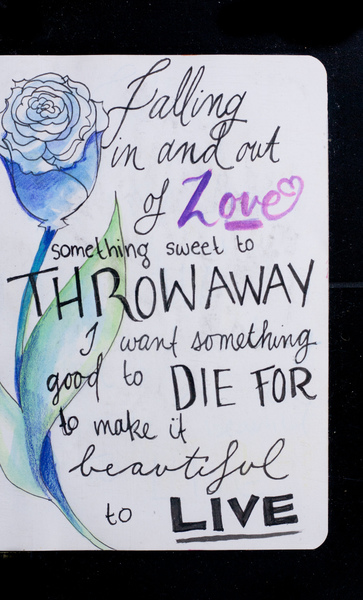 Falling
in and out
of Love
something sweet to
THROWAWAY
I want something
good to DIE FOR
to make it
beautiful
to LIVE